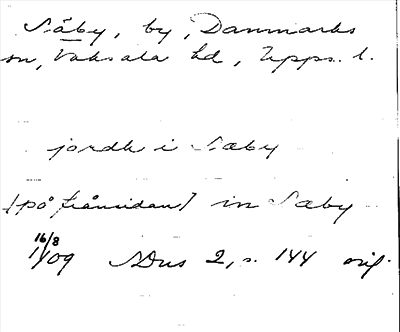 Säby, by, Danmarks
sn, Vaksala hd, Upps. l.
jordh i Sæby
[på frånsidan] in Sæby
16/8
1409 SDns 2, s. 144 orig.